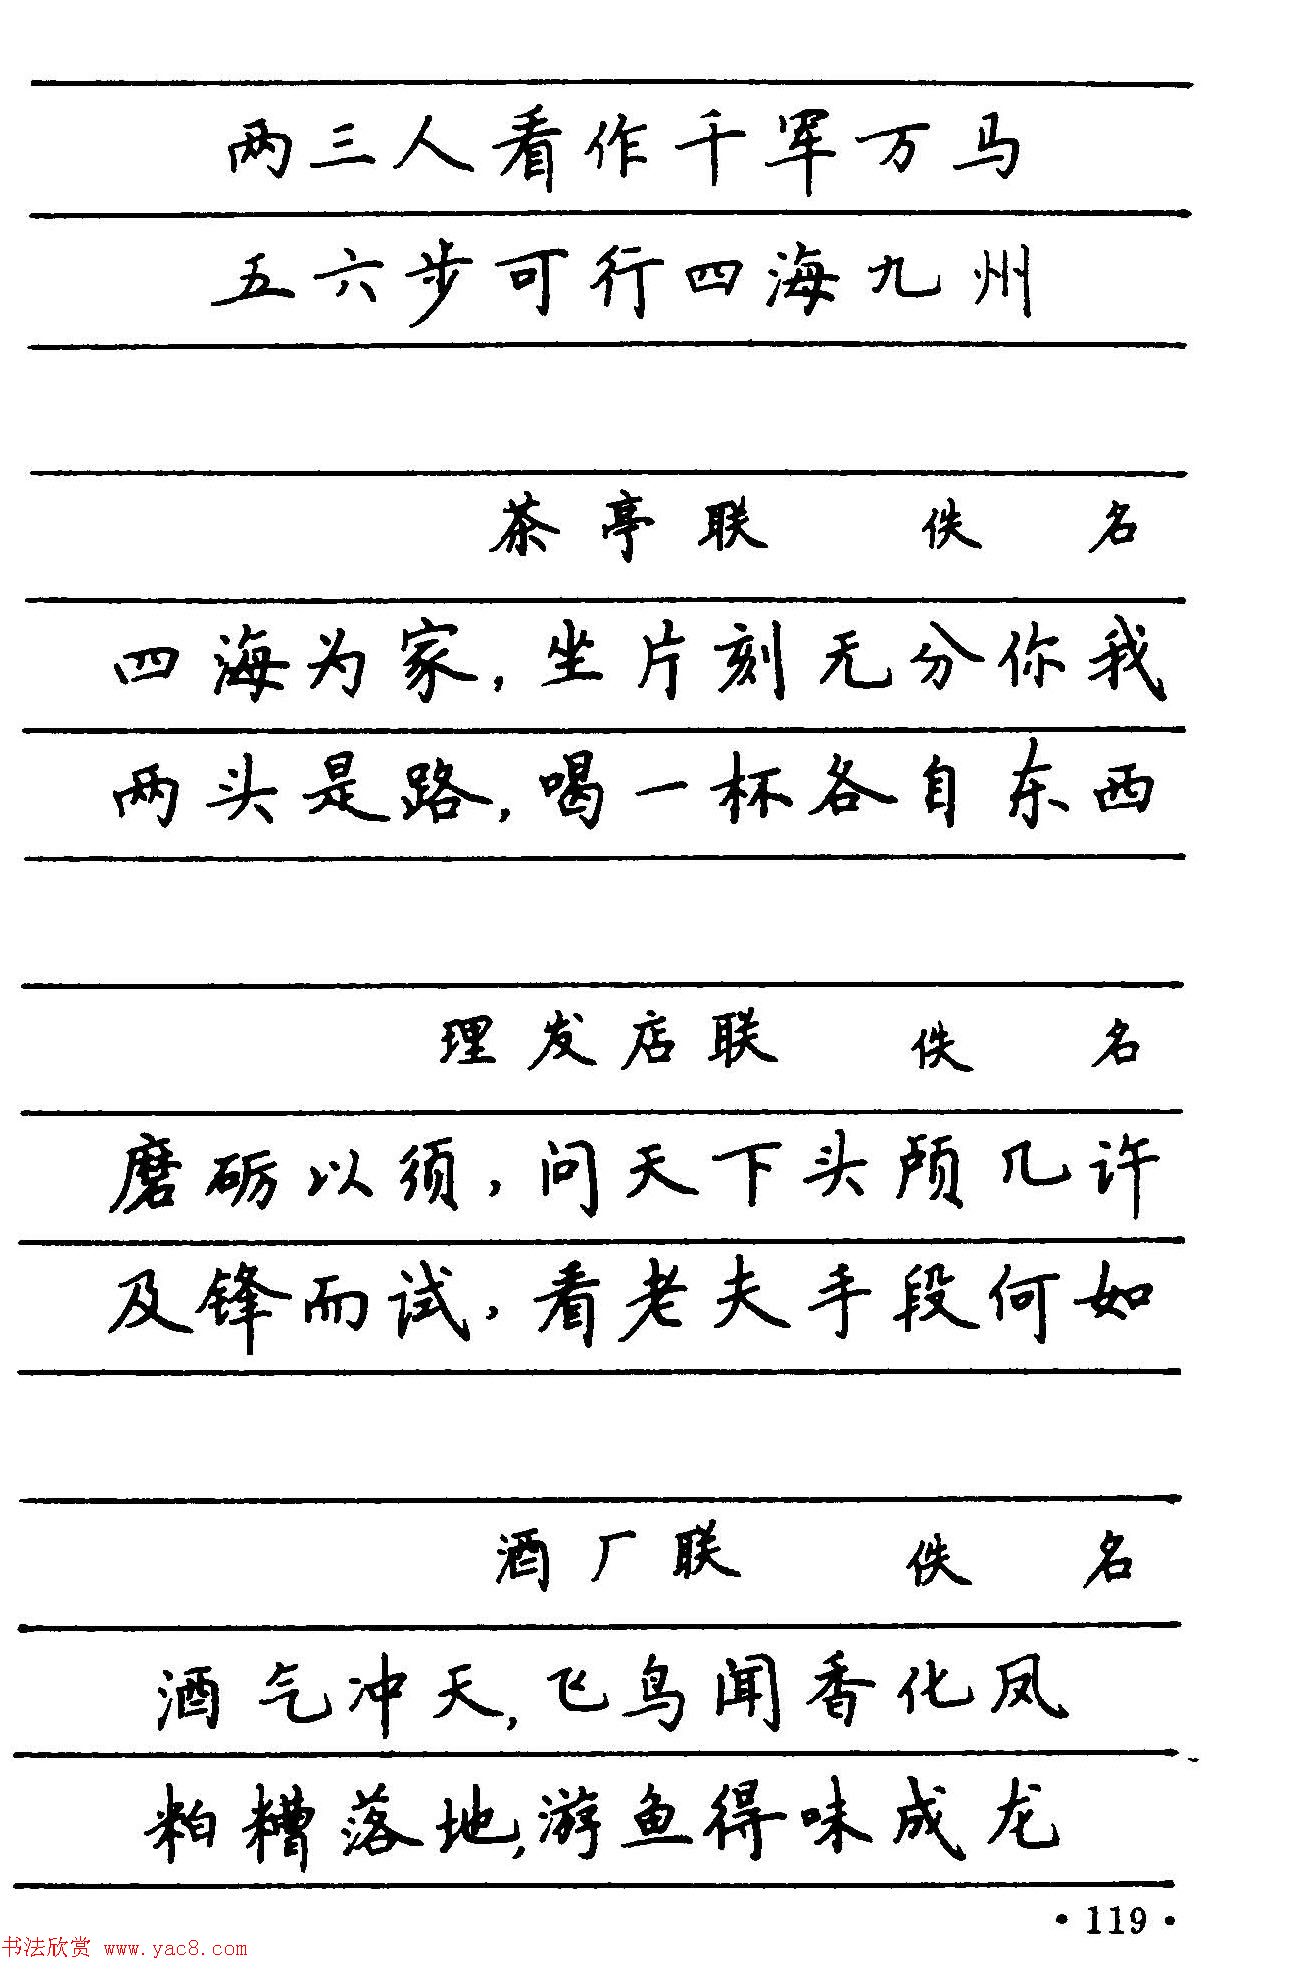 两三人看作千军万马
五六步可行四海九州
茶亭联 佚名
四海为家，坐片刻无分你我
两头是路，喝一杯各自东西
理发店联 佚名
磨砺以须，问天下头颅几许
及锋而试，看老夫手段何如
酒厂联 佚名
酒气冲天，飞鸟闻香化凤
粕糟落地，游鱼得味成龙
·119·
书法欣赏 www.yac8.com